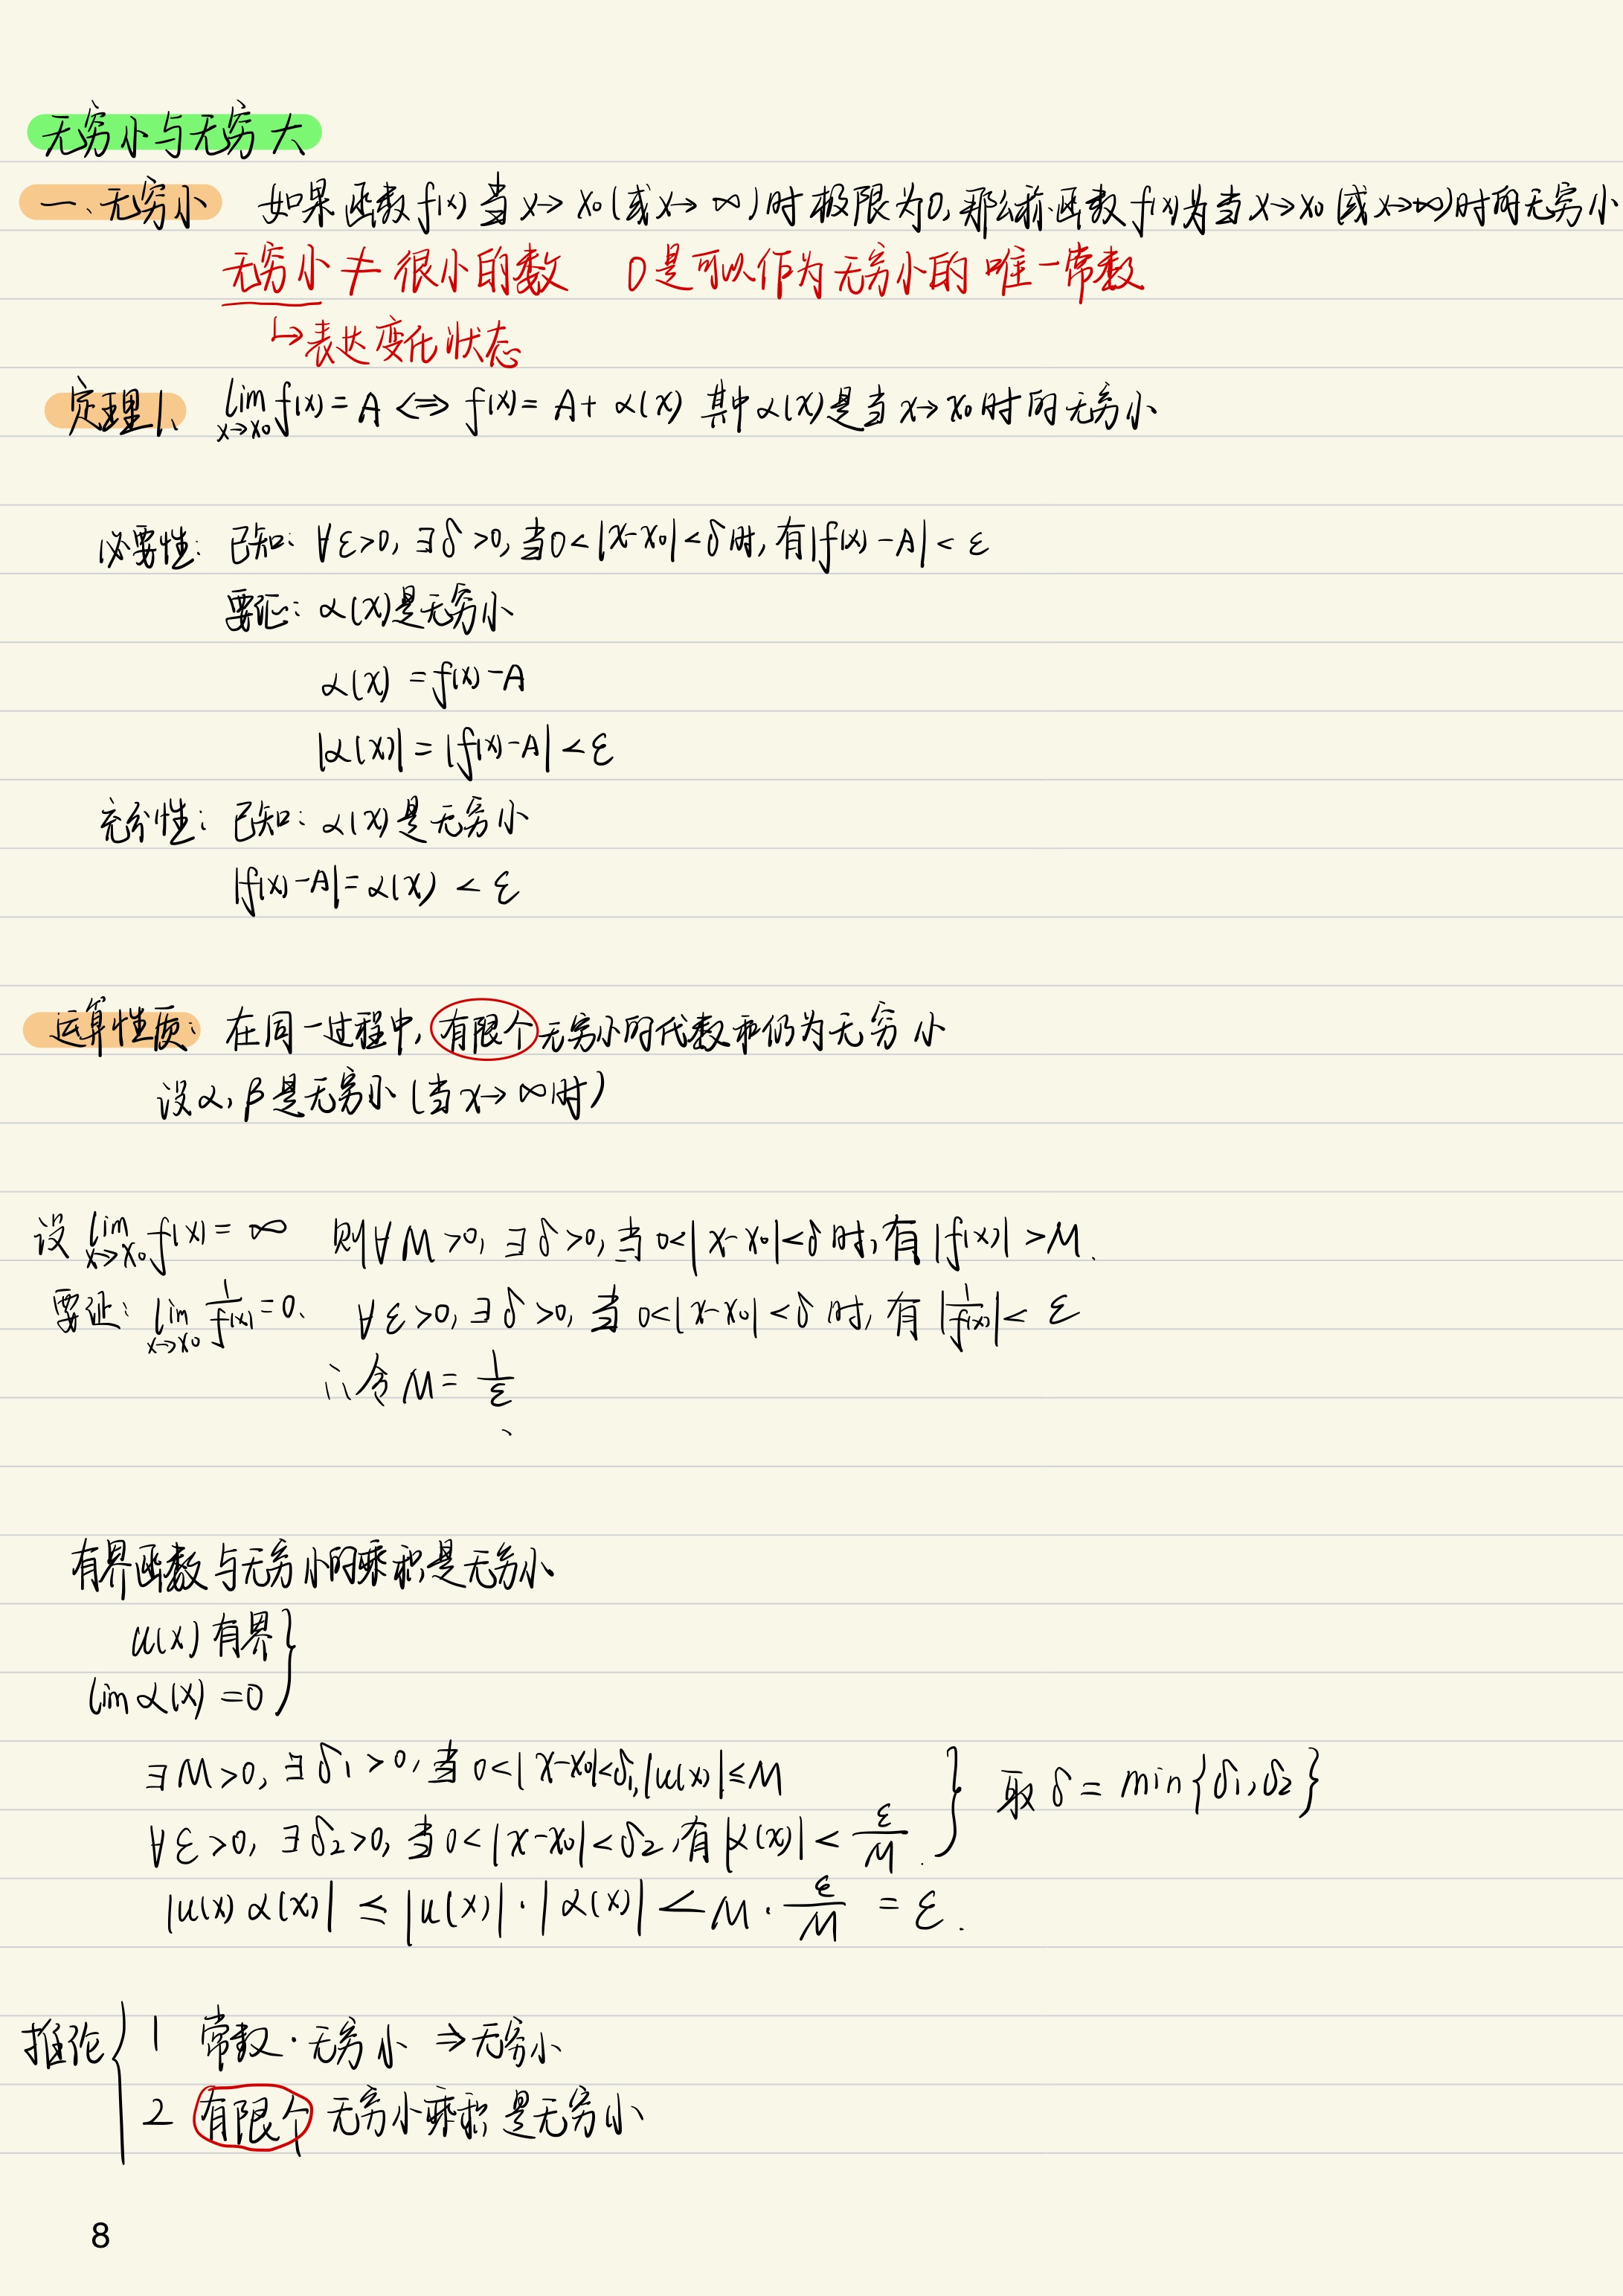 无穷小与无穷大
一、无穷小 如果函数f(x)当x→x₀(或x→∞)时极限为0,那么称函数f(x)为当x→x₀(或x→∞)时的无穷小
无穷小≠很小的数 0是可以作为无穷小的唯一常数
↳表达变化状态
定理1、 lim_{x→x₀} f(x)=A ⇔ f(x)=A+α(x) 其中α(x)是当x→x₀时的无穷小
必要性: 已知: ∀ε>0,∃δ>0,当0<|x-x₀|<δ时,有|f(x)-A|<ε
要证: α(x)是无穷小
α(x)=f(x)-A
|α(x)|=|f(x)-A|<ε
充分性: 已知: α(x)是无穷小
|f(x)-A|=α(x)<ε
运算性质: 在同一过程中,有限个无穷小的代数和仍为无穷小
设α,β是无穷小(当x→∞时)
设 lim_{x→x₀} f(x)=∞ 则∀M>0,∃δ>0,当0<|x-x₀|<δ时,有|f(x)|>M.
要证: lim_{x→x₀} 1/f(x)=0. ∀ε>0,∃δ>0,当0<|x-x₀|<δ时,有|1/f(x)|<ε
∴令M=1/ε
有界函数与无穷小的乘积是无穷小
u(x)有界}
lim α(x)=0
∃M>0,∃δ₁>0,当0<|x-x₀|<δ₁,|u(x)|≤M } 取δ=min{δ₁,δ₂}
∀ε>0,∃δ₂>0,当0<|x-x₀|<δ₂,有|α(x)|<ε/M.
|u(x)α(x)|≤|u(x)|·|α(x)|<M·ε/M=ε.
推论{ 1 常数·无穷小⇒无穷小
2 有限个无穷小乘积是无穷小
8